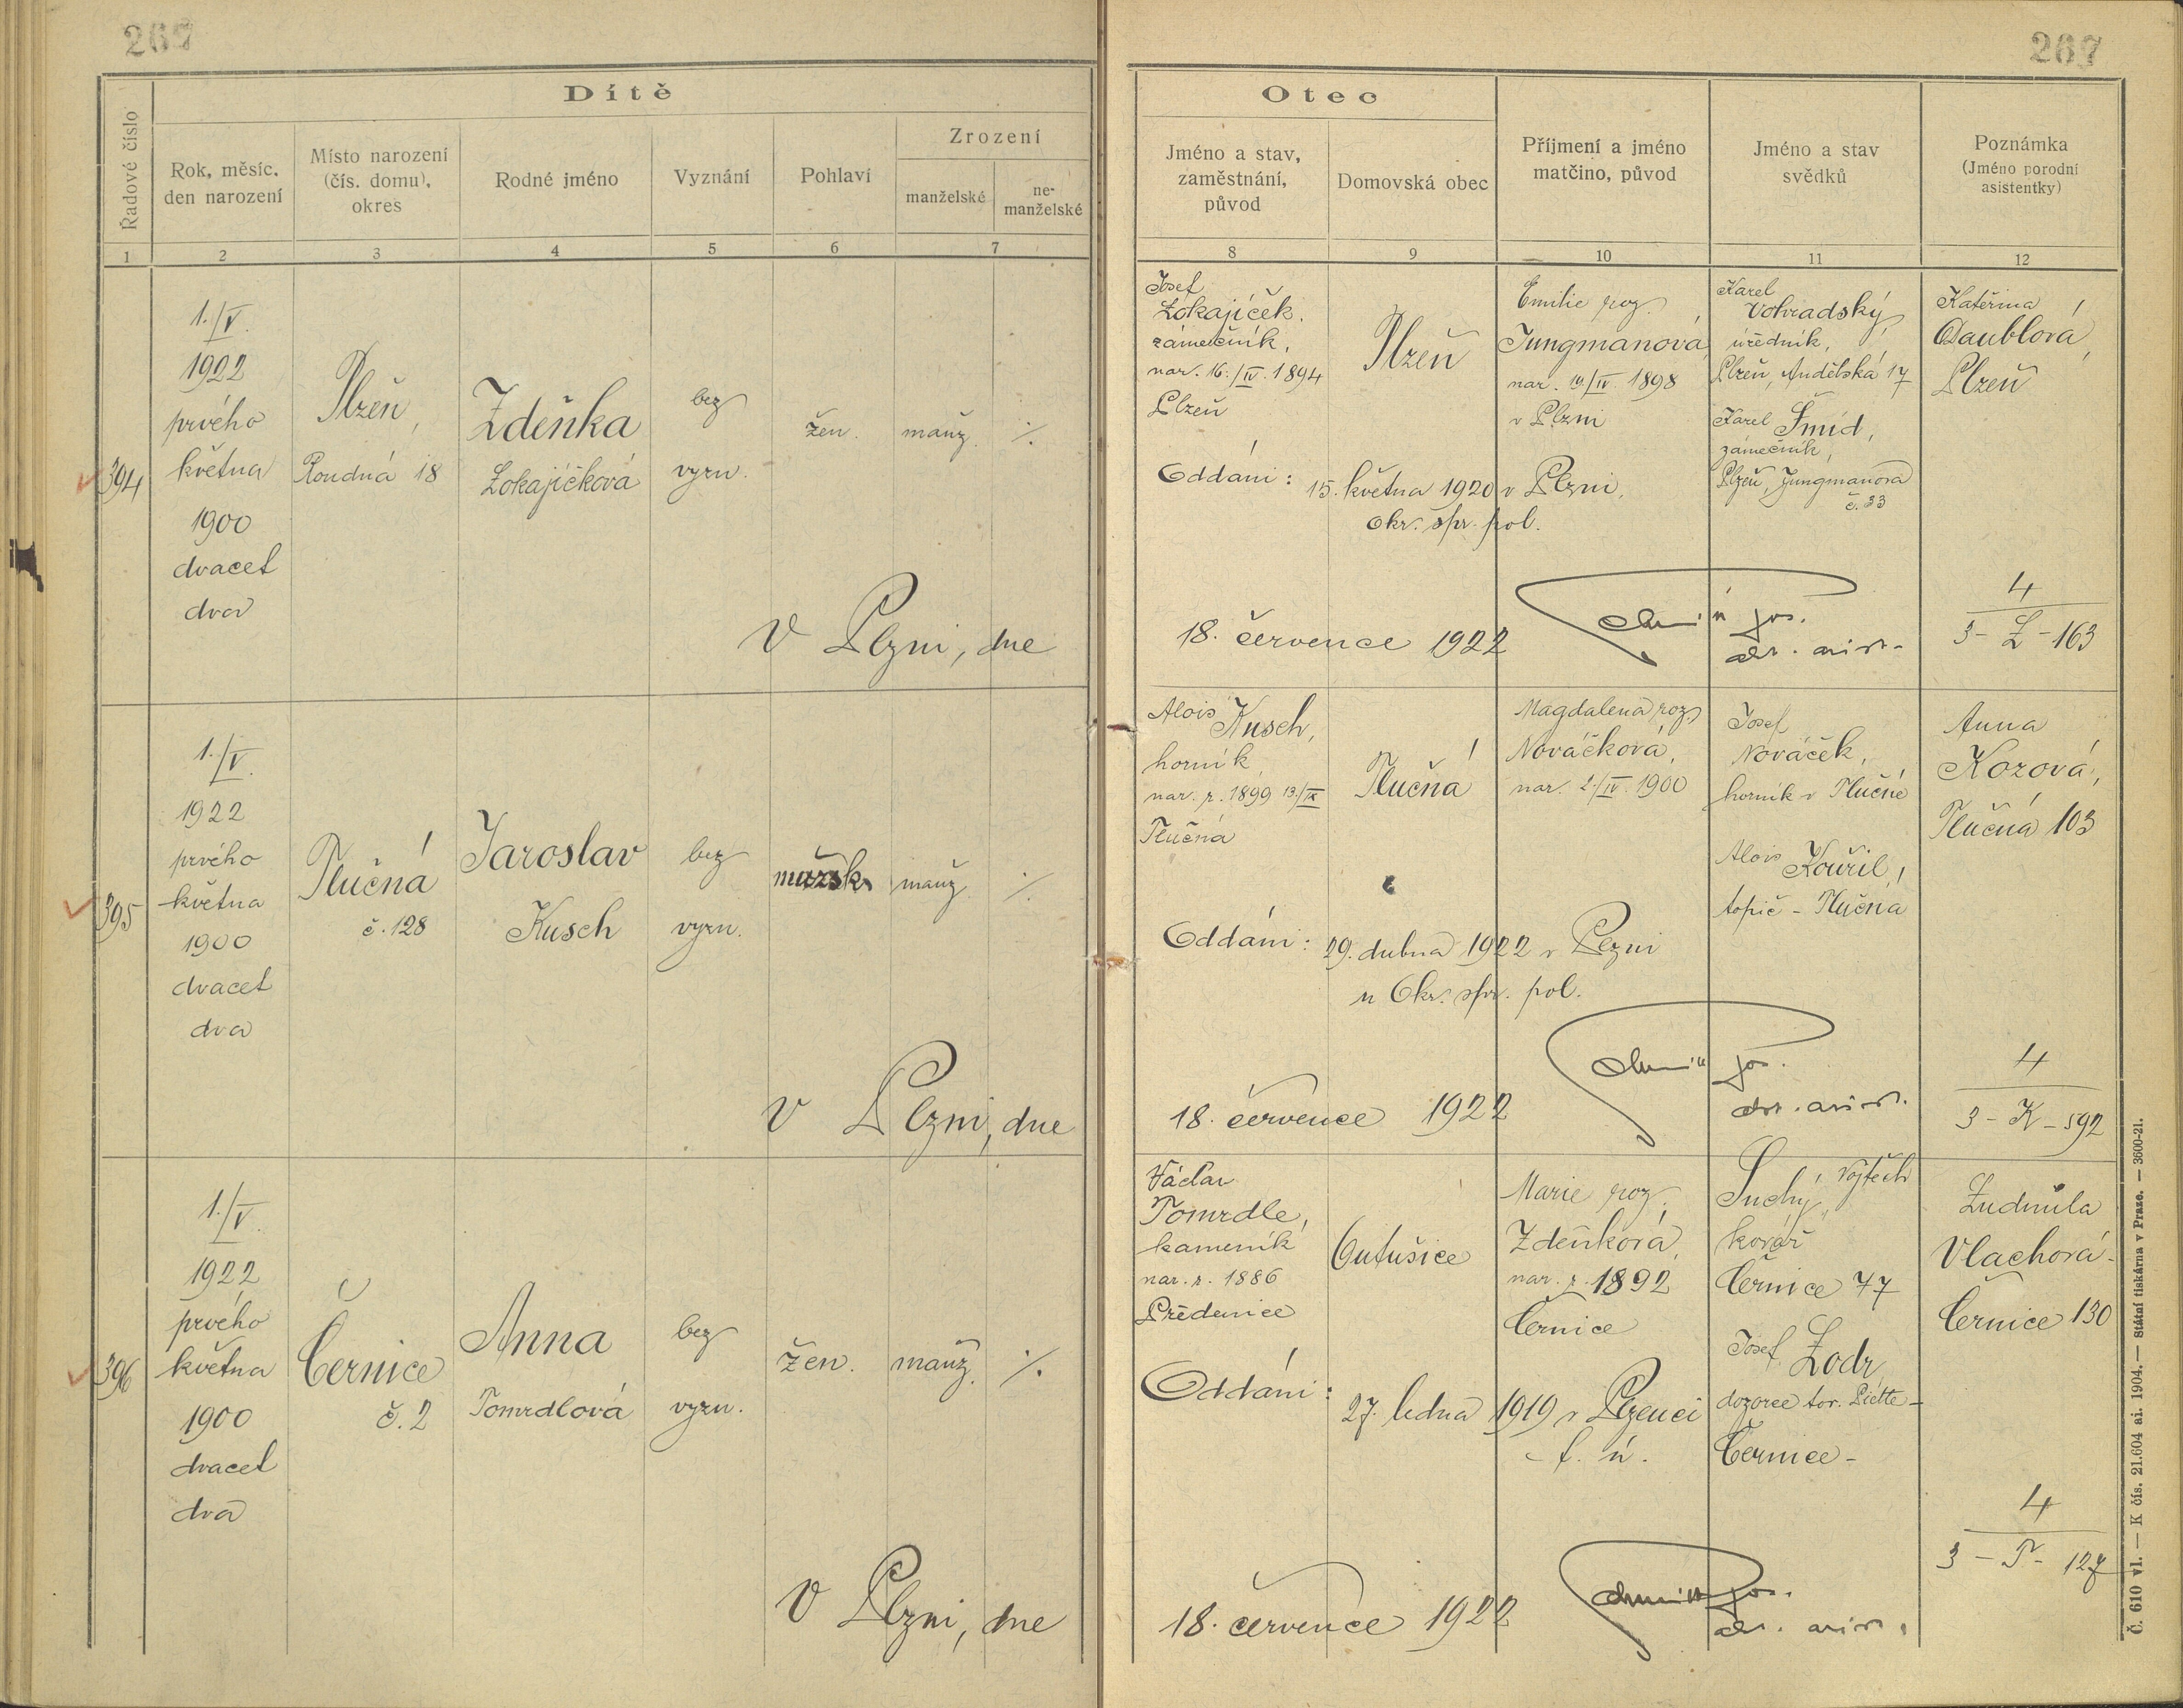 267
267
Dítě
Řadové číslo
Rok, měsíc, den narození
Místo narození (čís. domu), okres
Rodné jméno
Vyznání
Pohlaví
Zrození
manželské
ne-manželské
Otec
Jméno a stav, zaměstnání, původ
Domovská obec
Příjmení a jméno matčino, původ
Jméno a stav svědků
Poznámka
(Jméno porodní asistentky)
1 2 3 4 5 6 7 8 9 10 11 12
394
1./V.
1922
prvého
května
1900
dvacet
dva
Plzeň,
Roudná 18
Zdeňka
Lokajíčková
bez
vyzn.
žen.
manž.
·/.
Josef
Lokajíček,
zámečník,
nar. 16./IV. 1894
Plzeň
Plzeň
Emilie roz.
Jungmanová,
nar. 10./IV. 1898
v Plzni
Karel
Vohradský,
úředník,
Plzeň, Andělská 17
Karel Šmíd,
zámečník,
Plzeň, Jungmanova
č. 33
Kateřina
Daublová,
Plzeň
Oddáni: 15. května 1920 v Plzni,
okr. spr. pol.
V Plzni, dne 18. července 1922
4
3 - L - 163
395
1./V.
1922
prvého
května
1900
dvacet
dva
Tlučná
č. 128
Jaroslav
Kusch
bez
vyzn.
mužsk.
manž.
·/.
Alois Kusch,
horník,
nar. r. 1899 13./IX
Tlučná
Tlučná
Magdalena roz.
Nováčková,
nar. 2./IV. 1900
Josef
Nováček,
horník v Tlučné
Alois Kouřil,
topič - Tlučná
Anna
Kozová,
Tlučná 103
Oddáni: 29. dubna 1922 v Plzni
u Okr. spr. pol.
V Plzni, dne 18. července 1922
4
3 - K - 592
396
1./V.
1922
prvého
května
1900
dvacet
dva
Černice
č. 2
Anna
Tomrdlová
bez
vyzn.
žen.
manž.
·/.
Václav
Tomrdle,
kameník
nar. r. 1886
Předenice
Outušice
Marie roz.
Zdeňková,
nar. r. 1892
Černice
Suchý, Vojtěch
kovář
Černice 77
Josef Lodr,
dozorce tov. Piette -
Černice -
Ludmila
Vlachová -
Černice 130
Oddáni: 27. ledna 1919 v Plzenci
- f. ú.
V Plzni, dne 18. července 1922
4
3 - T - 127
Č. 610 vl. — K čís. 21.604 ai. 1904. — Státní tiskárna v Praze. — 3600-21.